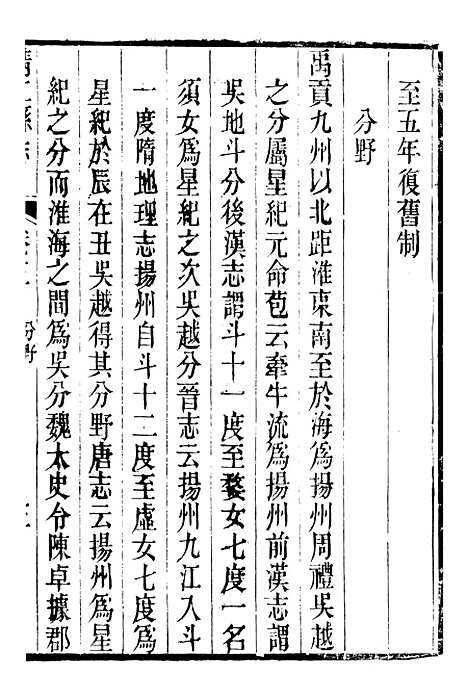 至五年復舊制
分野
禹貢九州以北距淮東南至於海爲揚州周禮吳越
之分屬星紀元命苞云牽牛流爲揚州前漢志謂
吳地斗分後漢志謂斗十一度至婺女七度一名
須女爲星紀之次吳越分晉志云揚州九江入斗
一度隋地理志揚州自斗十二度至虛女七度爲
星紀於辰在丑吳越得其分野唐志云揚州爲星
紀之分而淮海之間爲吳分魏太史令陳卓據郡
縣志
分野